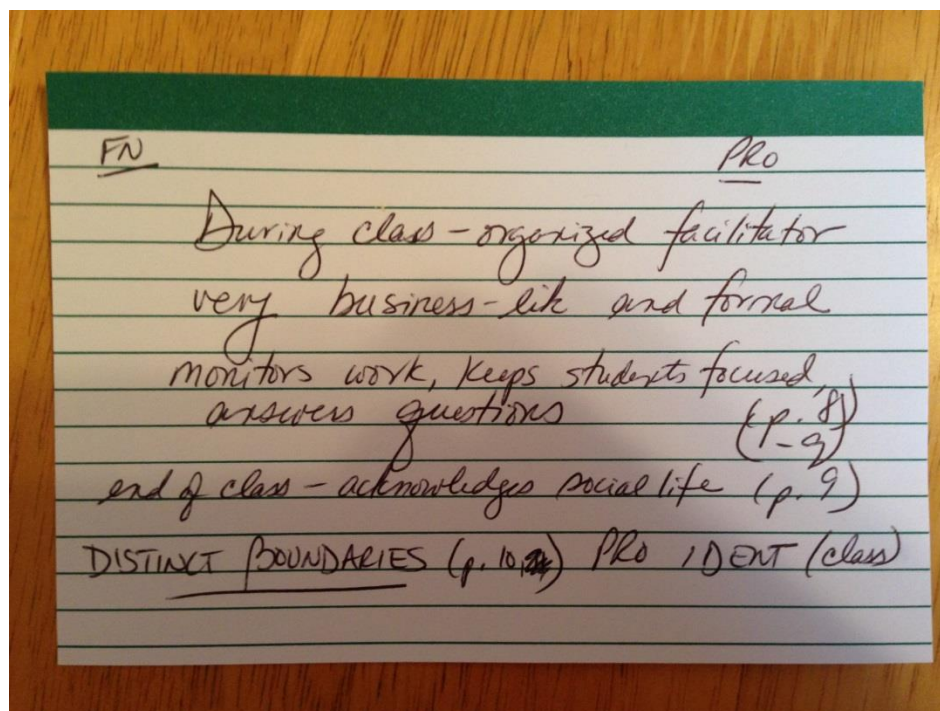 FN PRO
During class - organized facilitator
very business-lik and formal
monitors work, keeps students focused,
answers questions (p. 8
-9)
end of class - acknowledges social life (p. 9)
DISTINCT BOUNDARIES (p. 10, ) PRO IDENT (class)